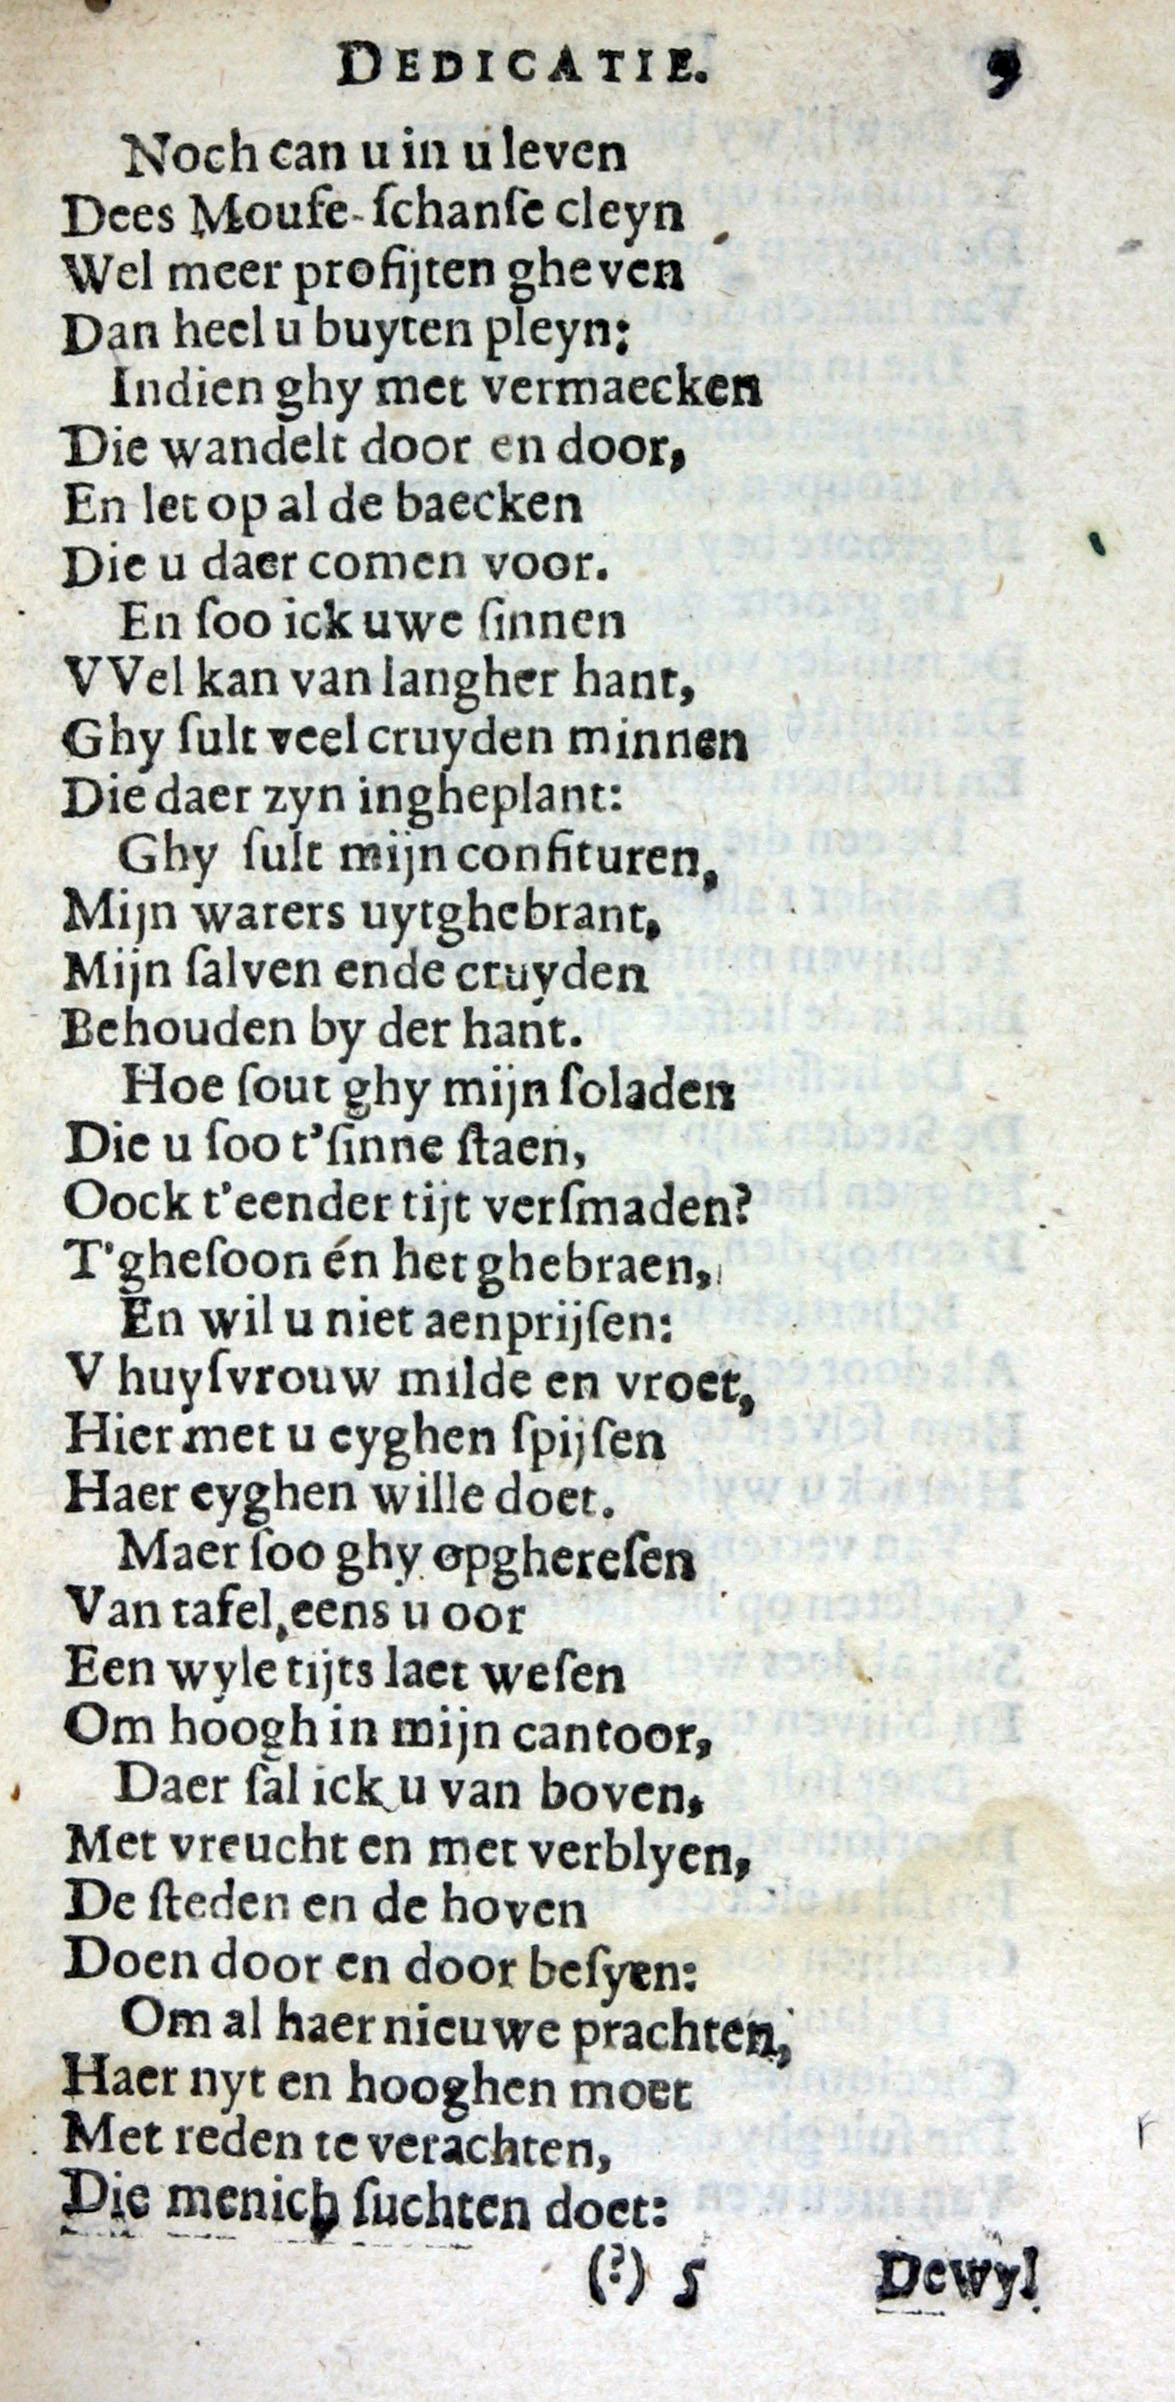 DEDICATIE. 9
Noch can u in u leven
Dees Mouse-ſchanſe cleyn
Wel meer profijten gheven
Dan heel u buyten pleyn:
Indien ghy met vermaecken
Die wandelt door en door,
En let op al de baecken
Die u daer comen voor.
En ſoo ick uwe ſinnen
VVel kan van langher hant,
Ghy ſult veel cruyden minnen
Die daer zyn ingheplant:
Ghy ſult mijn confituren,
Mijn waters uytghebrant,
Mijn ſalven ende cruyden
Behouden by der hant.
Hoe ſout ghy mijn ſoladen
Die u ſoo t'ſinne ſtaen,
Oock t'eender tijt verſmaden?
T'gheſoon én het ghebraen,
En wil u niet aenprijſen:
V huyſvrouw milde en vroet,
Hier met u eyghen ſpijſen
Haer eyghen wille doet.
Maer ſoo ghy opghereſen
Van tafel, eens u oor
Een wyle tijts laet weſen
Om hoogh in mijn cantoor,
Daer ſal ick u van boven,
Met vreucht en met verblyen,
De ſteden en de hoven
Doen door en door beſyen:
Om al haer nieuwe prachten,
Haer nyt en hooghen moet
Met reden te verachten,
Die menich ſuchten doet:
(?) 5 Dewyl